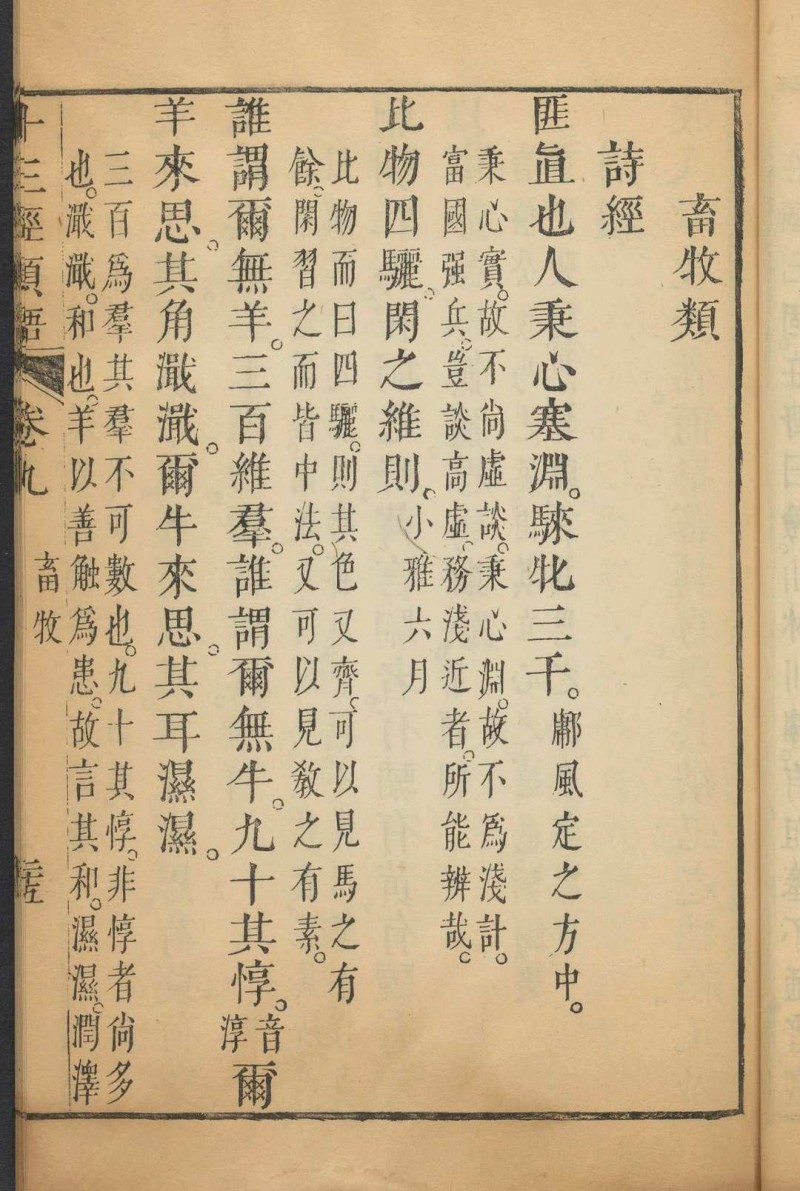 畜牧類
詩經
匪直也人秉心塞淵。騋牝三千。鄘風定之方中。
秉心實。故不尚虛談。秉心淵。故不爲淺計。
富國强兵。豈談高虛務淺近者。所能辨哉。
比物四驪。閑之維則。小雅六月
比物而曰四驪。則其色又齊。可以見馬之有
餘。閑習之而皆中法。又可以見教之有素。
誰謂爾無羊。三百維羣。誰謂爾無牛。九十其犉。音淳爾
羊來思。其角濈濈。爾牛來思。其耳濕濕。
三百爲羣其羣不可數也。九十其犉。非犉者尚多
也。濈濈。和也。羊以善触爲患。故言其和。濕濕。潤澤
十三經類語 卷九 畜牧